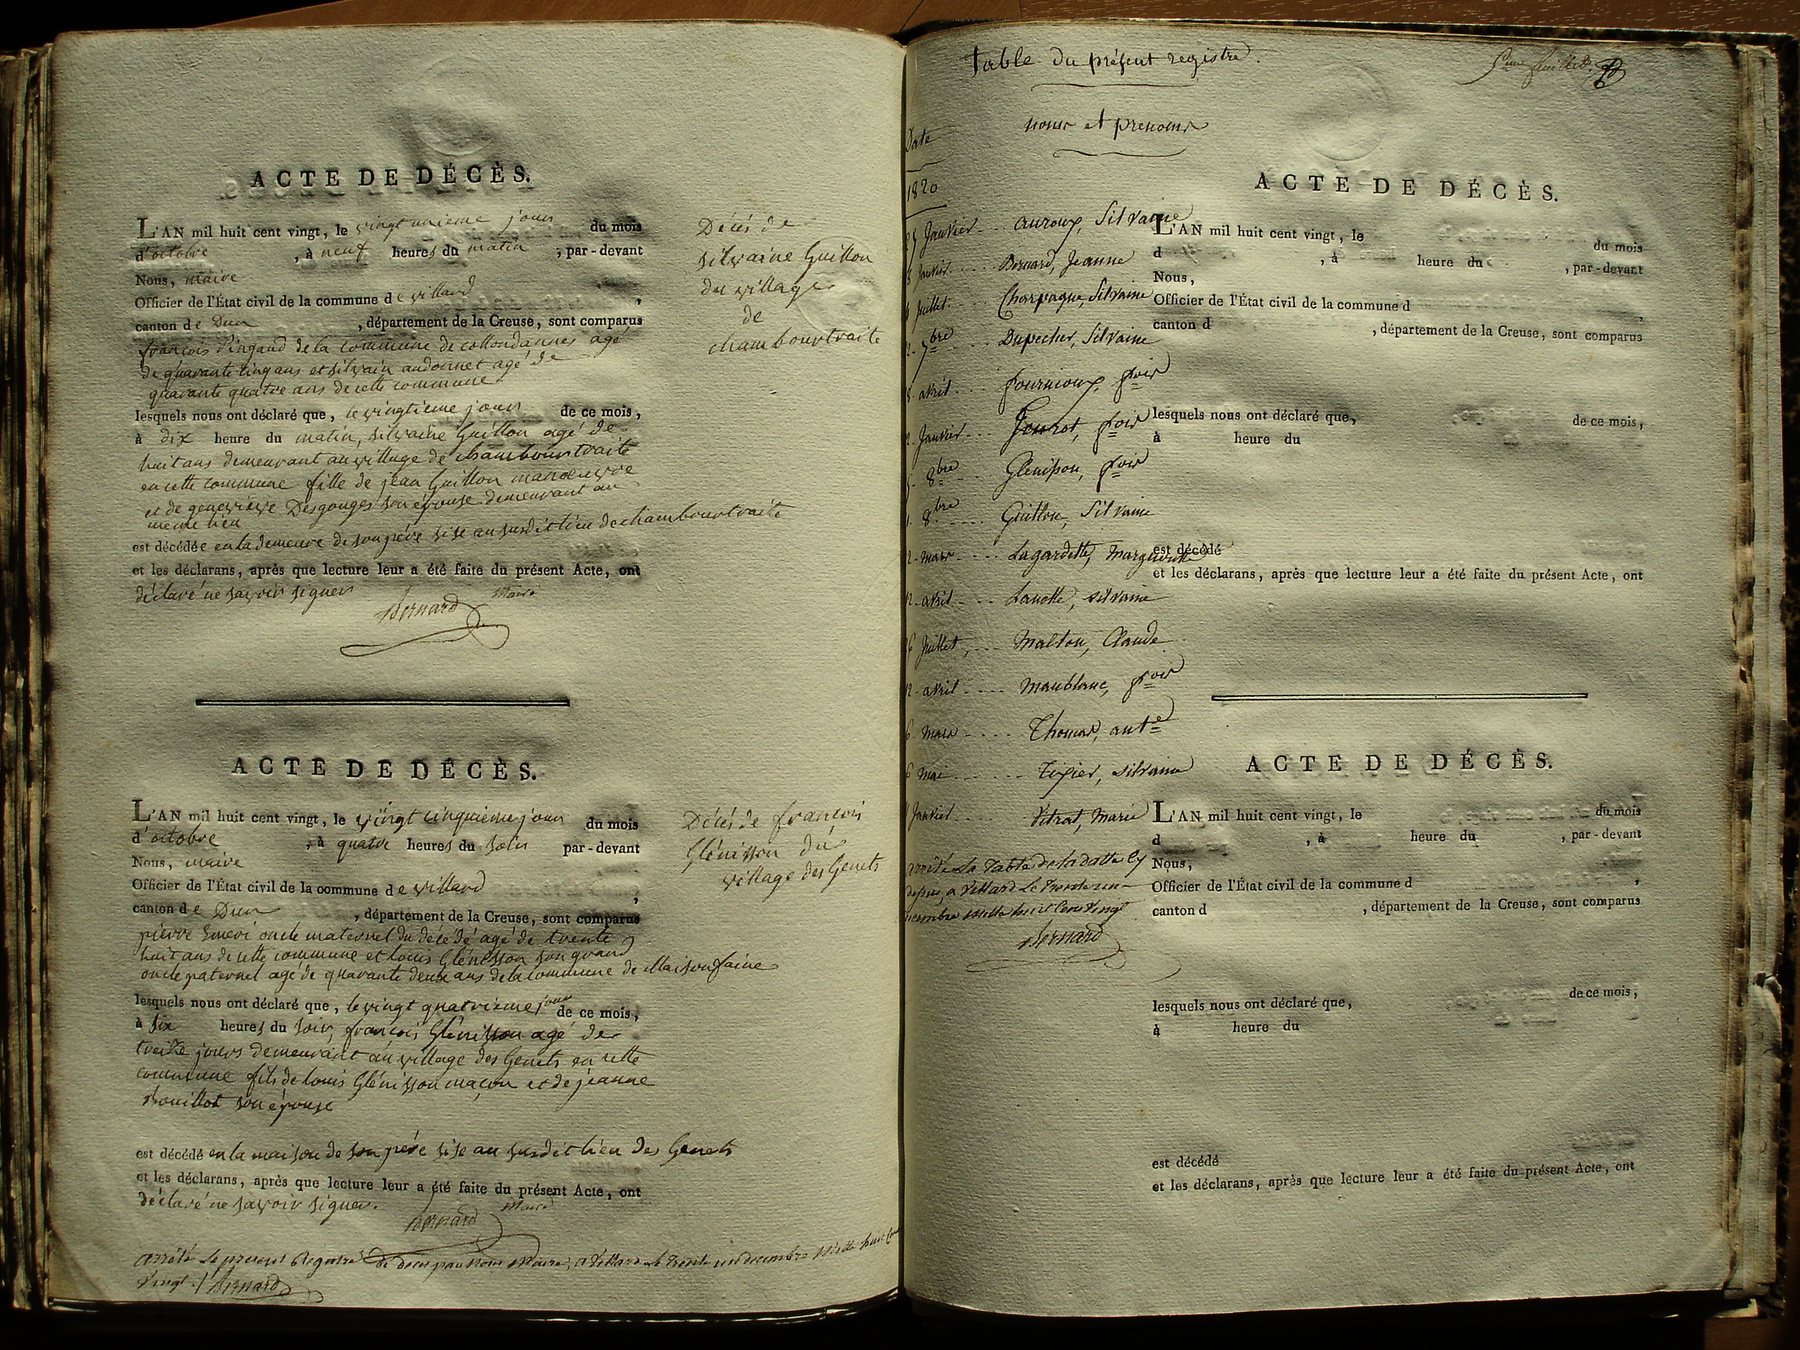 ACTE DE DÉCÈS.
L'AN mil huit cent vingt, le vingt unieme jour du mois
d'octobre, à neuf heures du matin, par-devant
Nous, maire
Officier de l'État civil de la commune de villard,
canton de Dun, département de la Creuse, sont comparus
françois Pingaud de la commune de collondannes agé
de quarante cinq ans et silvain audonnet agé de
quarante quatre ans de cette commune
lesquels nous ont déclaré que, le vingtieme jour de ce mois,
à dix heure du matin, silvaine Guillon agé de
huit ans demeurant au village de chambourtraite
en cette commune fille de jean Guillon manoeuvre
et de genevieve Desgouges son épouse demeurant au
meme lieu
est décédée en la demeure de son père sise au susdit lieu de chambourtraite
et les déclarans, après que lecture leur a été faite du présent Acte, ont
déclaré ne savoir signer
Bernard Maire
Décés de
silvaine Guillon
du village
de
chambourtraite
ACTE DE DÉCÈS.
L'AN mil huit cent vingt, le vingt cinquieme jour du mois
d'octobre, à quatre heures du soir par-devant
Nous, maire
Officier de l'État civil de la commune de villard,
canton de Dun, département de la Creuse, sont comparus
pierre Emeri oncle maternel du décédé agé de trente
huit ans de cette commune et louis Glénisson son grand
oncle paternel agé de quarante deux ans de la commune de Maisonfaine
lesquels nous ont déclaré que, le vingt quatrieme jour de ce mois,
à six heures du soir, francois Glénisson agé de
treize jours demeurant au village des Genets en cette
commune fils de louis Glénisson maçon et de jeanne
Bouillot son épouse
est décédé en la maison de son père sise au susdit lieu des Genets
et les déclarans, après que lecture leur a été faite du présent Acte, ont
déclaré ne savoir signer.
Bernard Maire
Décés de francois
Glénisson du
village des Genets
arrêté le présent Registre de décès par nous Maire, a Villard le trente un decembre mille huit cent
vingt Bernard
Table du présent registre.
5eme feuillet
Date
noms et prenoms
1820
Janvier auroux, Silvaine
Janvier Bernard, Jeanne
Juillet Charpagne, Silvaine
7bre Dupecher, Silvaine
avril fournioux, fçois
Janvier Jeurot, fçois
8bre Glenisson, fçois
8bre Guillon, Silvaine
mars Lagardette, Marguerite
avril Lanotte, silvaine
Juillet Malton, Claude
avril Maublanc, fçois
mars Thomas, ante
mai Tixier, silvaine
Janvier Vitrat, Marie
arrêté La Table de la datte Cy
dessus, a Villard Le trente un
decembre mille huit Cent vingt
Bernard
ACTE DE DÉCÈS.
L'AN mil huit cent vingt, le du mois
d , à heure du , par-devant
Nous,
Officier de l'État civil de la commune d ,
canton d , département de la Creuse, sont comparus
lesquels nous ont déclaré que, de ce mois,
à heure du
est décédé
et les déclarans, après que lecture leur a été faite du présent Acte, ont
ACTE DE DÉCÈS.
L'AN mil huit cent vingt, le du mois
d , à heure du , par-devant
Nous,
Officier de l'État civil de la commune d ,
canton d , département de la Creuse, sont comparus
lesquels nous ont déclaré que, de ce mois,
à heure du
est décédé
et les déclarans, après que lecture leur a été faite du présent Acte, ont